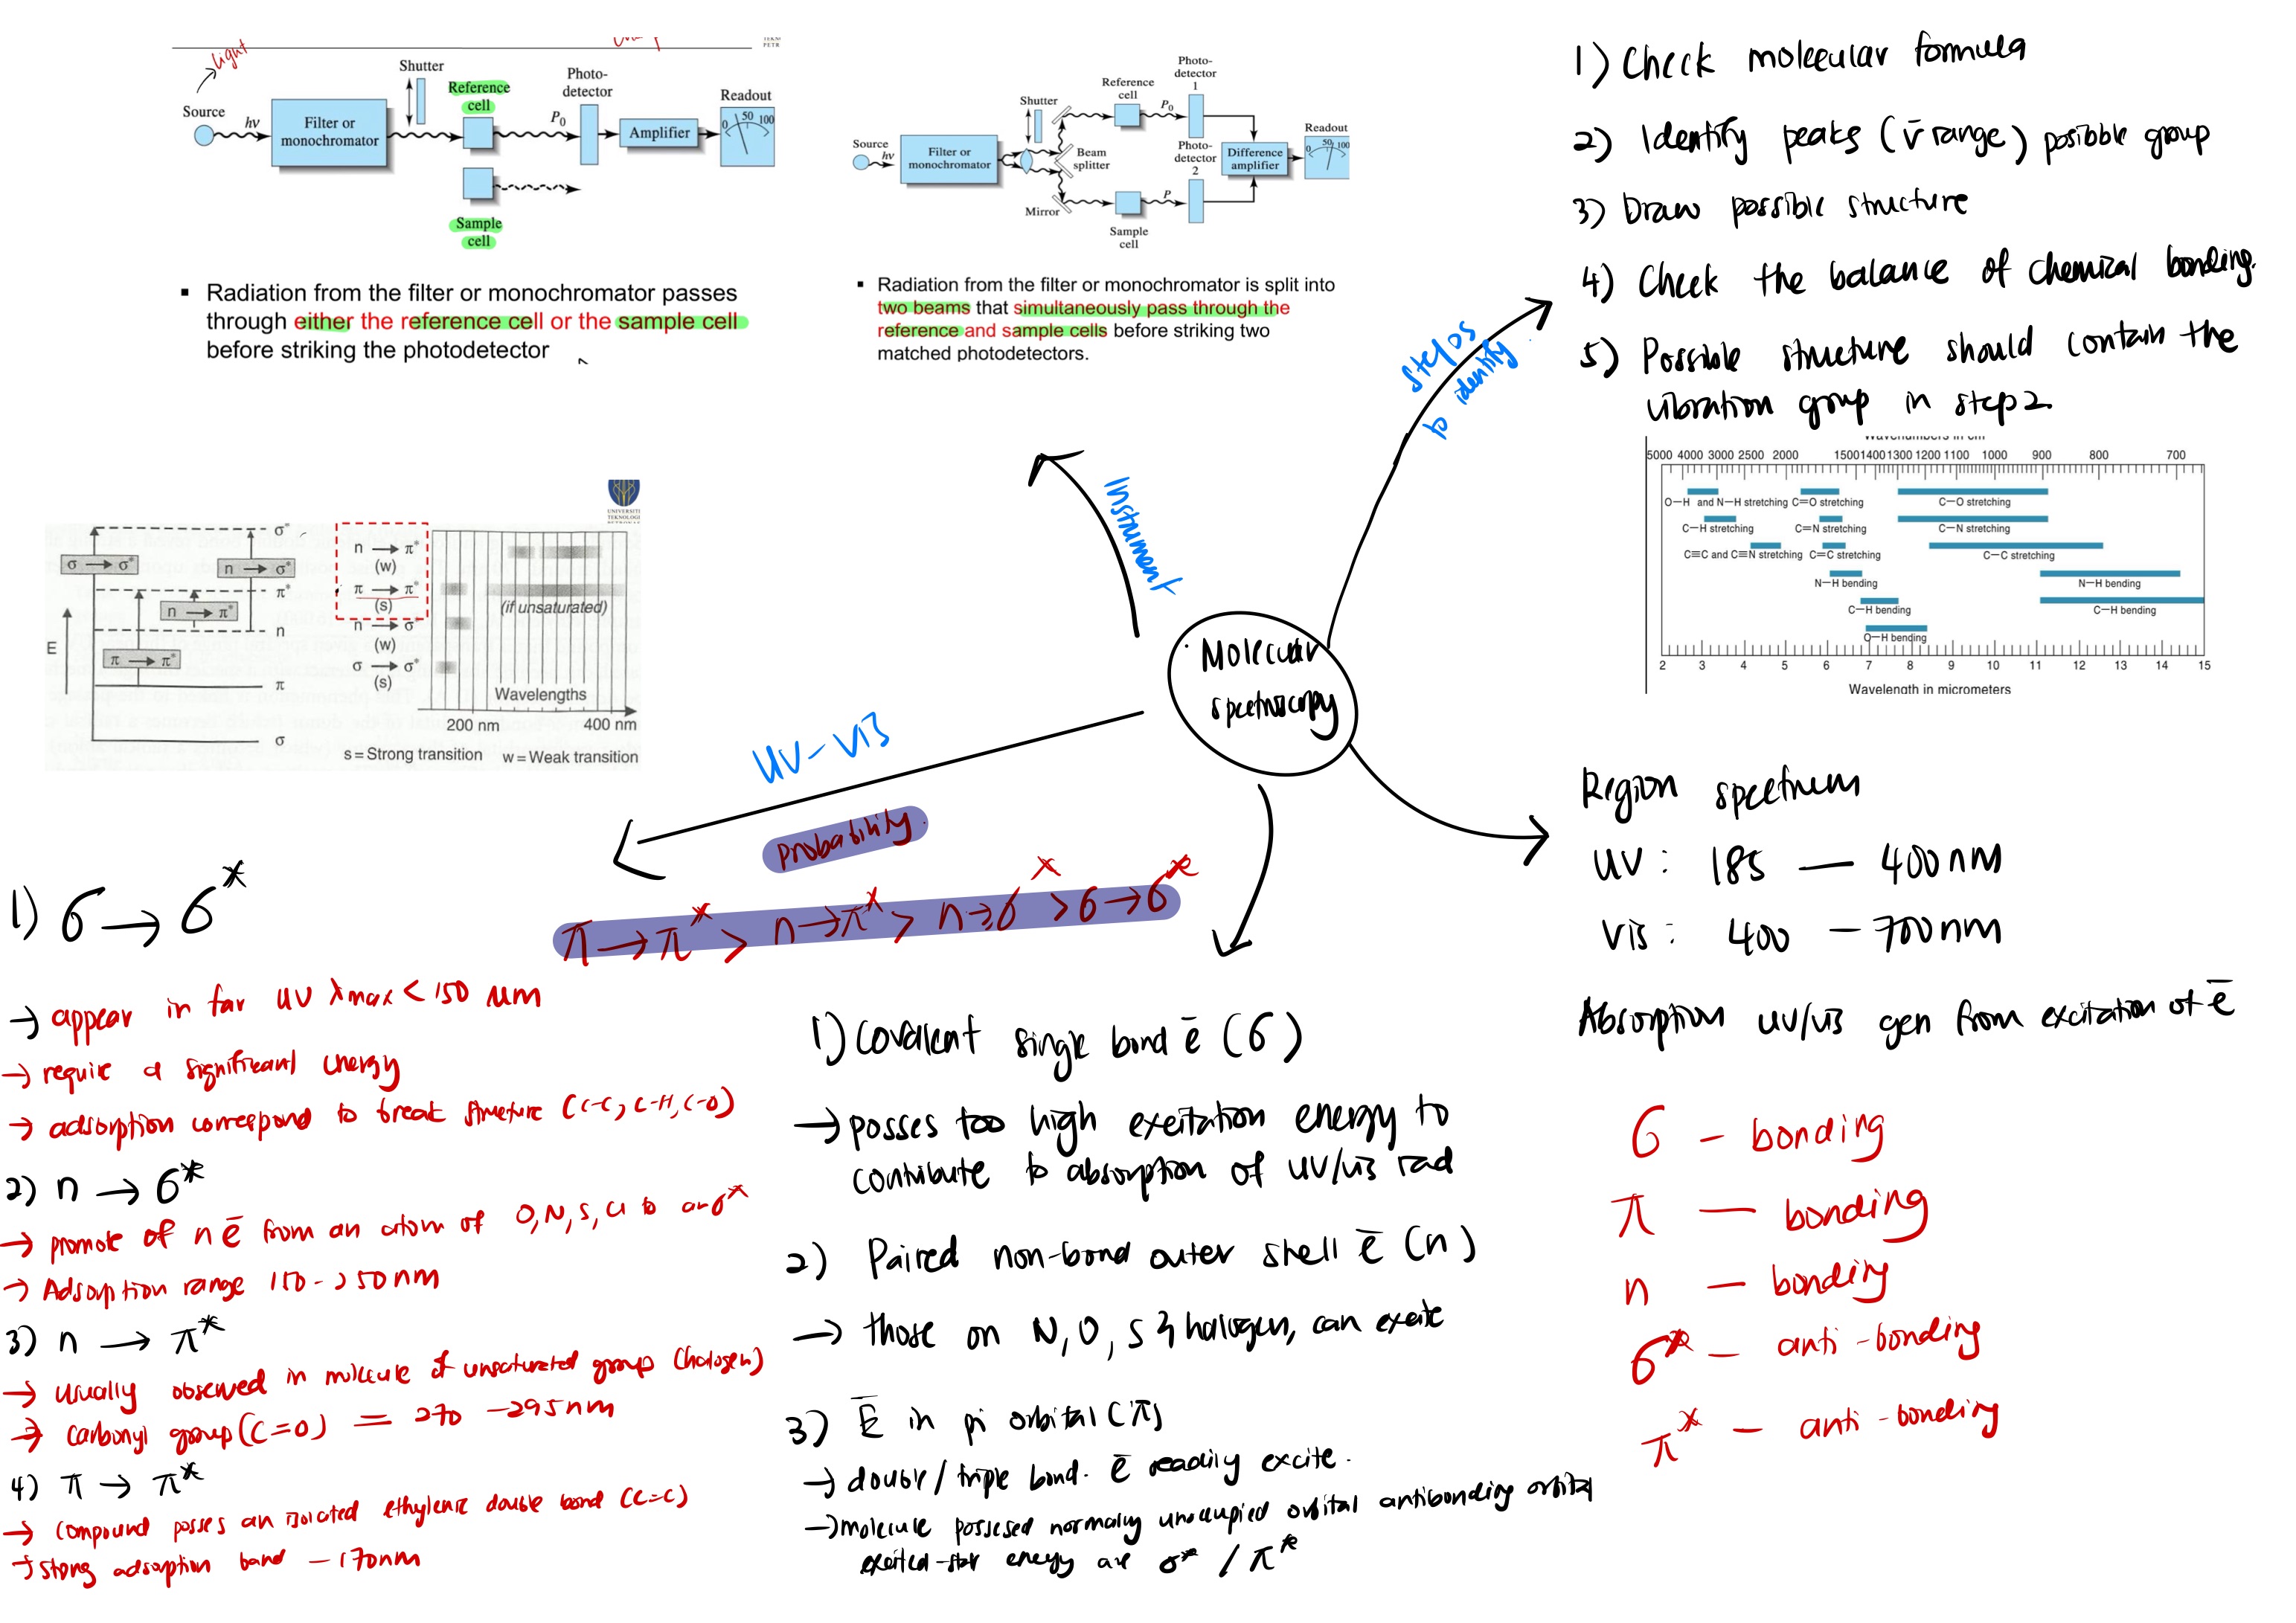 light
Source
hν
Filter or
monochromator
Shutter
Reference
cell
P0
Photo-
detector
Amplifier
Readout
0 50 100
Sample
cell
▪ Radiation from the filter or monochromator passes
through either the reference cell or the sample cell
before striking the photodetector
Source
hν
Filter or
monochromator
Shutter
Beam
splitter
Mirror
Reference
cell
P0
Photo-
detector
1
Sample
cell
P
Photo-
detector
2
Difference
amplifier
Readout
0 50 100
▪ Radiation from the filter or monochromator is split into
two beams that simultaneously pass through the
reference and sample cells before striking two
matched photodetectors.
1) Check molecular formula
2) Identify peaks (ν̄ range) posibble group
3) Draw possible structure
4) Check the balance of chemical bonding.
5) Possible structure should contain the
vibration group in step 2
steps
to identify
Instrument
Wavenumbers in cm
5000 4000 3000 2500 2000 1500 1400 1300 1200 1100 1000 900 800 700
O—H and N—H stretching C=O stretching C—O stretching
C—H stretching C=N stretching C—N stretching
C≡C and C≡N stretching C=C stretching C—C stretching
N—H bending N—H bending
C—H bending C—H bending
O—H bending
2 3 4 5 6 7 8 9 10 11 12 13 14 15
Wavelength in micrometers
UNIVERSITI
TEKNOLOGI
E
σ → σ*
n → σ*
n → π*
π → π*
σ*
π*
n
π
σ
n → π*
(w)
π → π*
(s)
n → σ*
(w)
σ → σ*
(s)
(if unsaturated)
Wavelengths
200 nm 400 nm
s = Strong transition w = Weak transition
Molecular
spectroscopy
UV-vis
probability
π → π* > n → π* > n → σ* > σ → σ*
1) σ → σ*
→ appear in far UV λmax < 150 nm
→ require a significant energy
→ adsorption correspond to break structure (C-C, C-H, C-O)
2) n → σ*
→ promote of n ē from an atom of O, N, S, Cl to an σ*
→ Adsorption range 150 - 250nm
3) n → π*
→ usually observed in molecule of unsaturated group (halogen)
→ Carbonyl group (C=O) = 270 - 295nm
4) π → π*
→ compound posses an isolated ethylenic double bond (C=C)
→ strong adsorption band - 170nm
1) Covalent single bond ē (σ)
→ posses too high excitation energy to
contribute to absorption of uv/vis rad
2) Paired non-bond outer shell ē (n)
→ those on N, O, S & halogen, can excite
3) Ē in pi orbital (π)
→ double / triple bond. ē readily excite.
→ molecule possesed normally unoccupied orbital antibonding orbital
excited-star energy are σ* / π*
Region spectrum
UV: 185 — 400nm
Vis: 400 — 700nm
Absorption uv/vis gen from excitation of ē
σ - bonding
π — bonding
n — bonding
σ* - anti-bonding
π* - anti-bonding